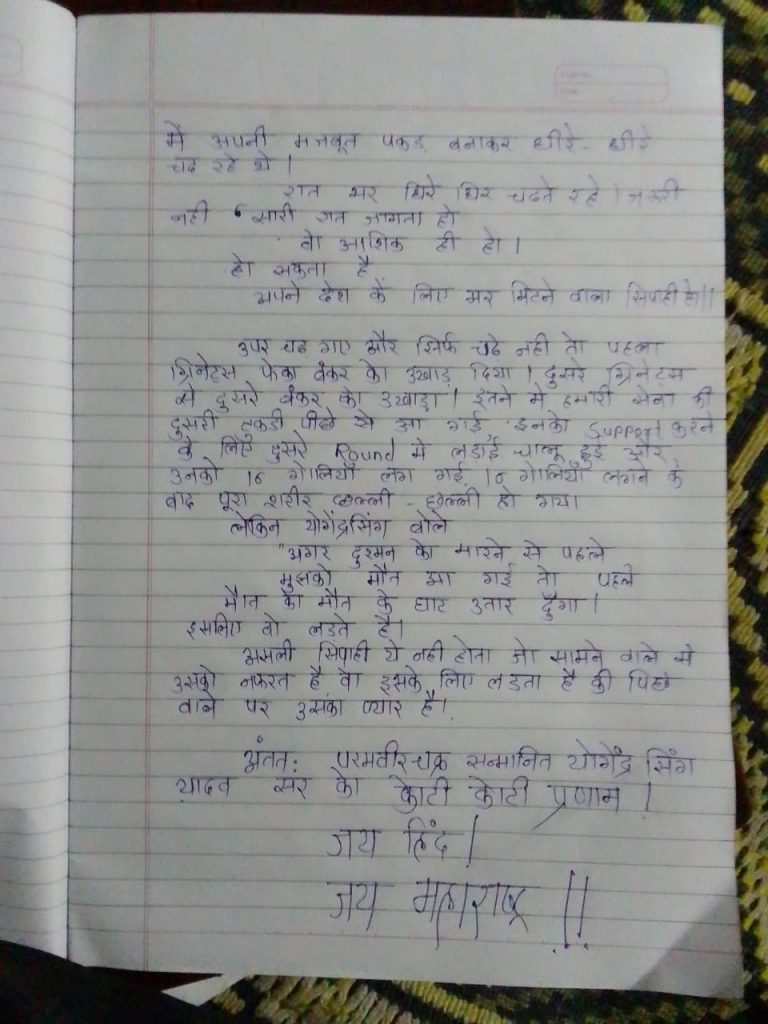 में अपनी मजबूत पकड बनाकर धीरे - धीरे
चढ रहे थे ।
रात भर धिरे धिर चढते रहे । जरुरी
नही सारी रात जागता हो
वो आशिक ही हो ।
हो सकता है
अपने देश के लिए मर मिटने वाला सिपाही हो।।
उपर चढ गए और सिर्फ चढे नही तो पहला
ग्रिनेट्स फेका बंकर को उखाड़ दिया । दुसरे ग्रिनेट्स
से दुसरे बंकर को उखाडा । इतने मे हमारी सेना की
दुसरी टुकडी पीछे से आ गई इनको Support करने
के लिए दुसरे Round मे लड़ाई चालू हुई और
उनको 16 गोलियाँ लग गई, 16 गोलियाँ लगने के
बाद पूरा शरीर छल्ली - छल्ली हो गया
लेकिन योगेंद्रसिंग बोले
"अगर दुश्मन को मारने से पहले
मुझको मौत आ गई तो पहले
मौत को मौत के घाट उतार दुँगा ।
इसलिए वो लडते है।
असली सिपाही ये नही होता जो सामने वाले से
उसको नफरत है वो इसके लिए लडता है की पिछे
वाले पर उसका प्यार है।
अंतत: परमवीरचक्र सन्मानित योगेंद्र सिंग
यादव सर को कोटी कोटी प्रणाम !
जय हिंद !
जय महाराष्ट्र !!